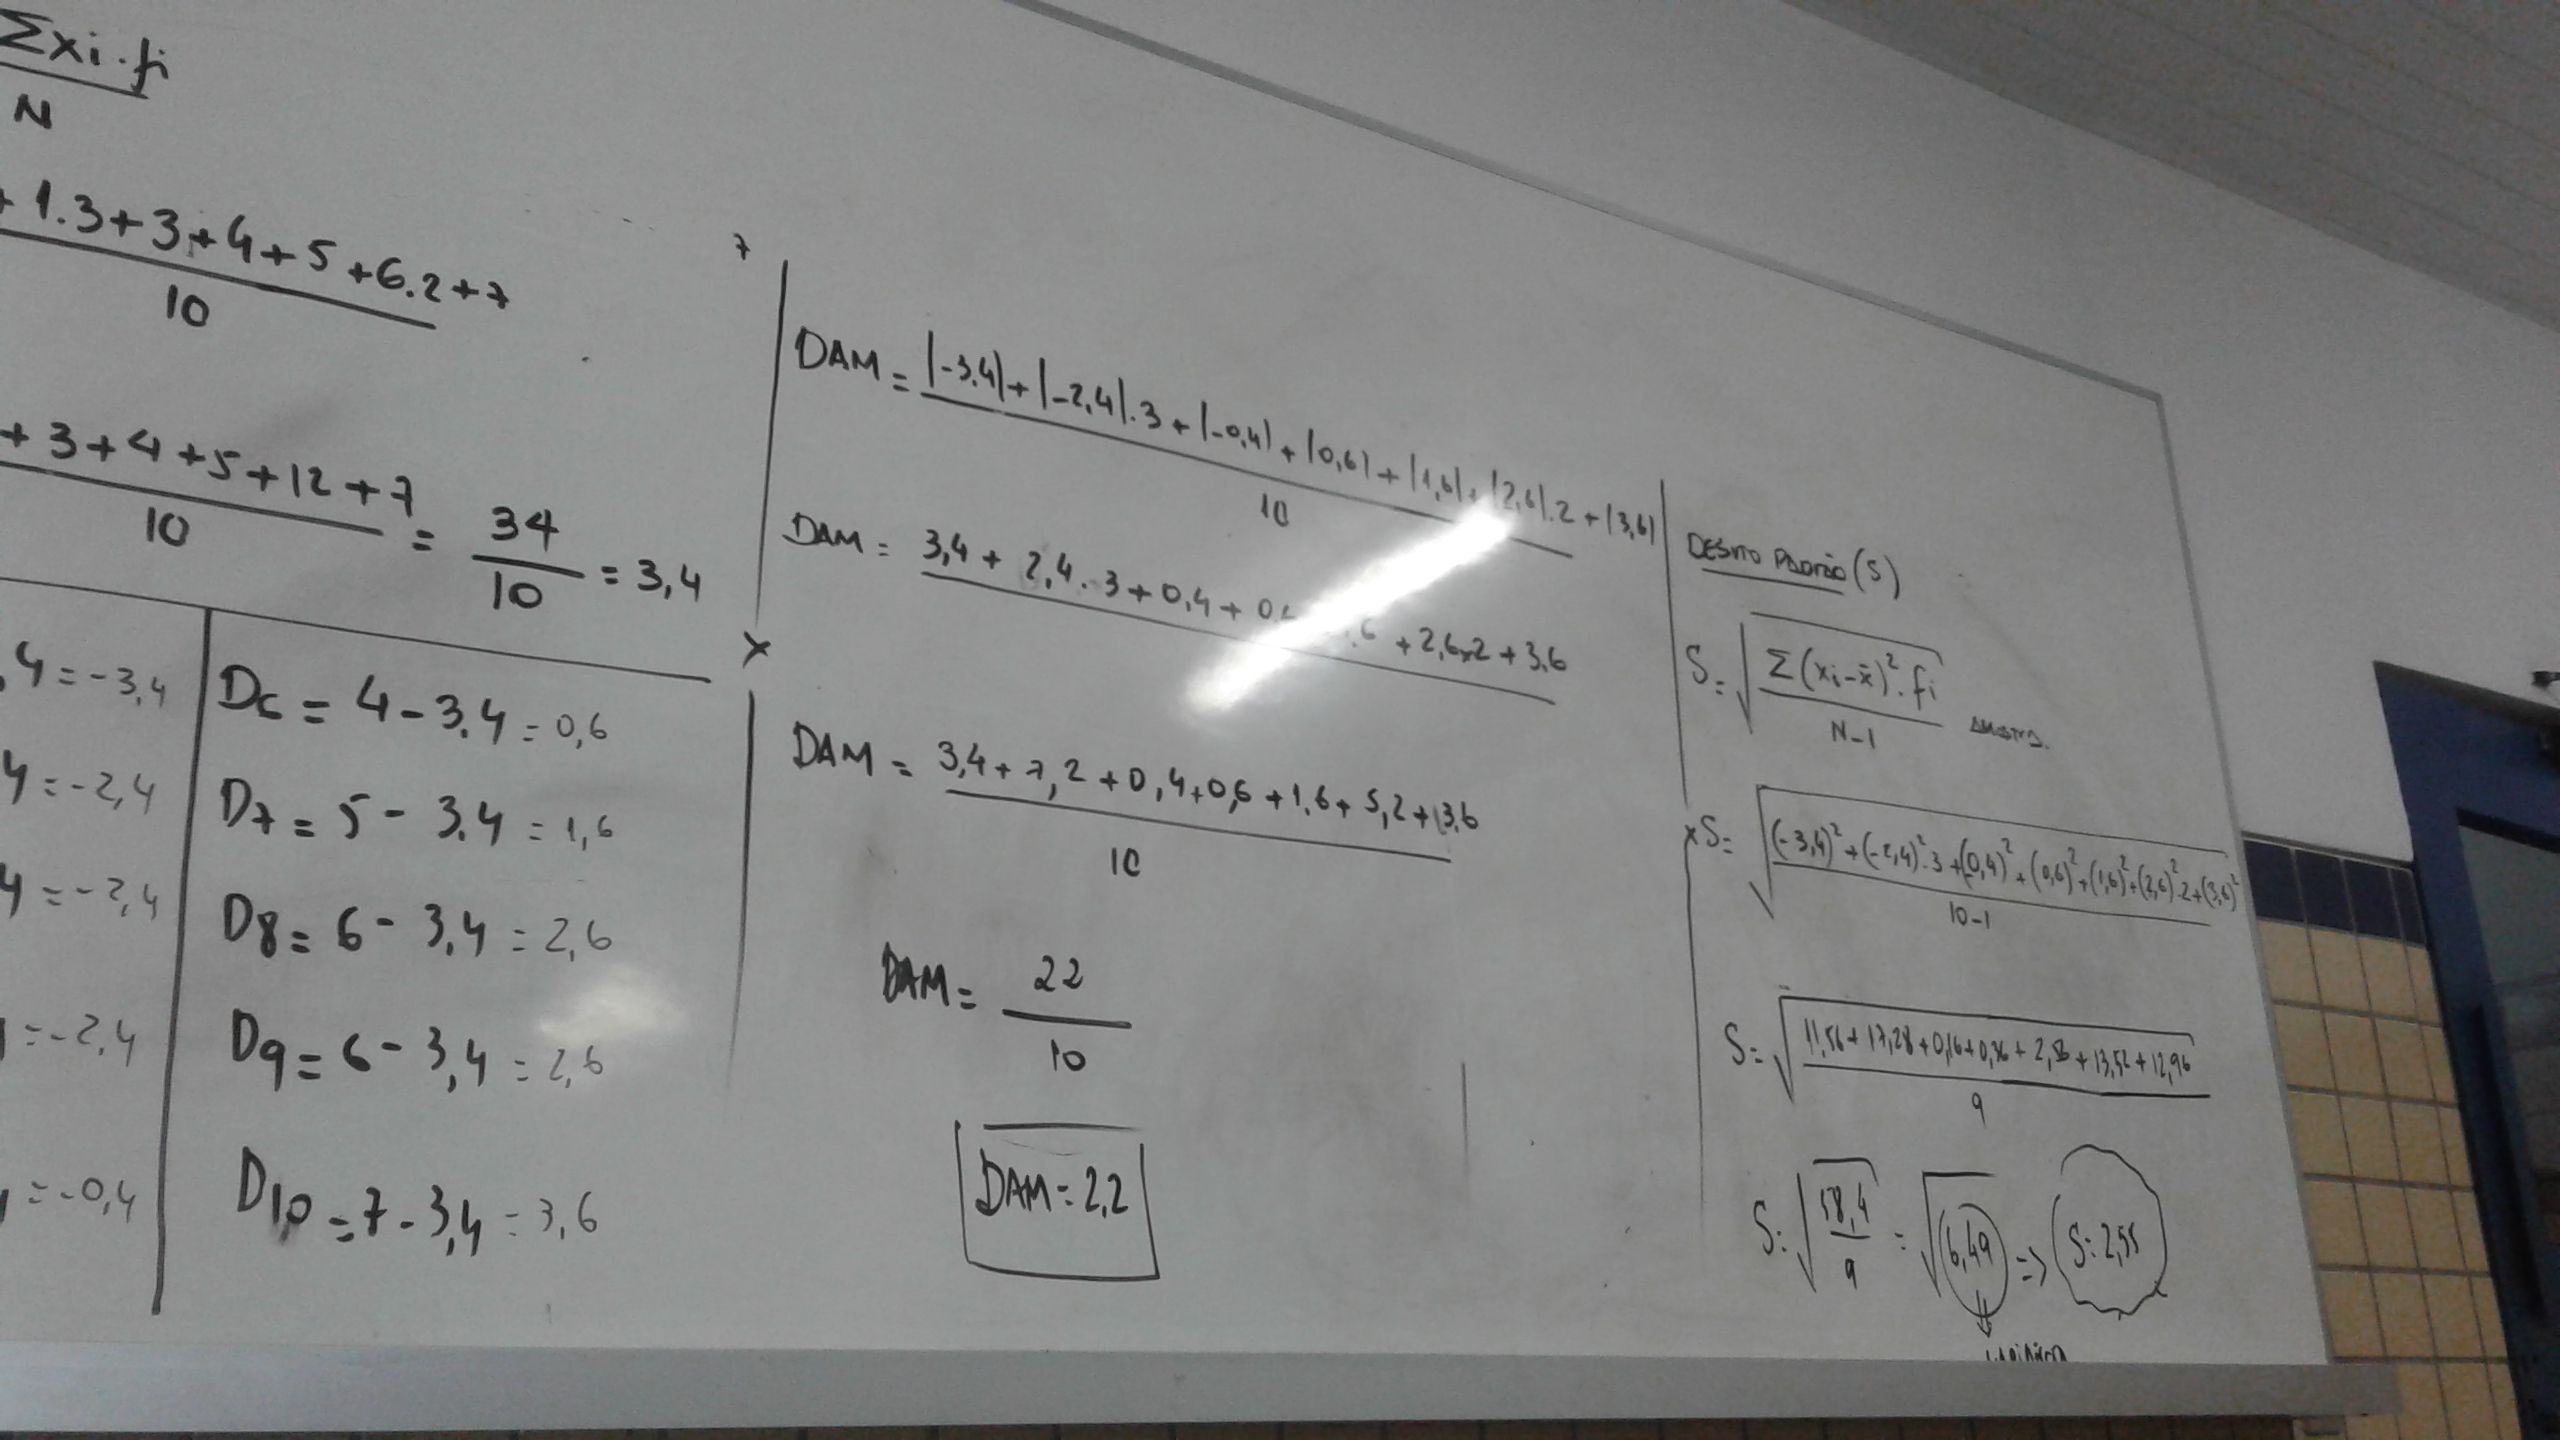 Σxi.fi
N
+ 1.3+3+4+5+6.2+7
10
+ 3+4+5+12+7 = 34 = 3,4
10 10
,4=-3,4
4=-2,4
4=-2,4
=-2,4
=-0,4
D6 = 4-3,4=0,6
D7 = 5-3,4=1,6
D8 = 6-3,4=2,6
D9 = 6-3,4=2,6
D10 = 7-3,4=3,6
7
x
DAM = |-3,4|+|-2,4|.3+|-0,4|+|0,6|+|1,6|+|2,6|.2+|3,6|
10
DAM = 3,4+2,4.3+0,4+ +2,6x2+3,6
DAM = 3,4+7,2+0,4+0,6+1,6+5,2+3,6
10
DAM = 22
10
DAM=2,2
DESVIO PADRÃO (S)
S=√Σ(xi-x̄)².fi
N-1 AMOSTRA.
x S=√(-3,4)²+(-2,4)².3+(0,4)²+(0,6)²+(1,6)²+(2,6)².2+(3,6)²
10-1
S=√11,56+17,28+0,16+0,36+2,56+13,52+12,96
9
S=√58,4 = √6,49 => S=2,55
9